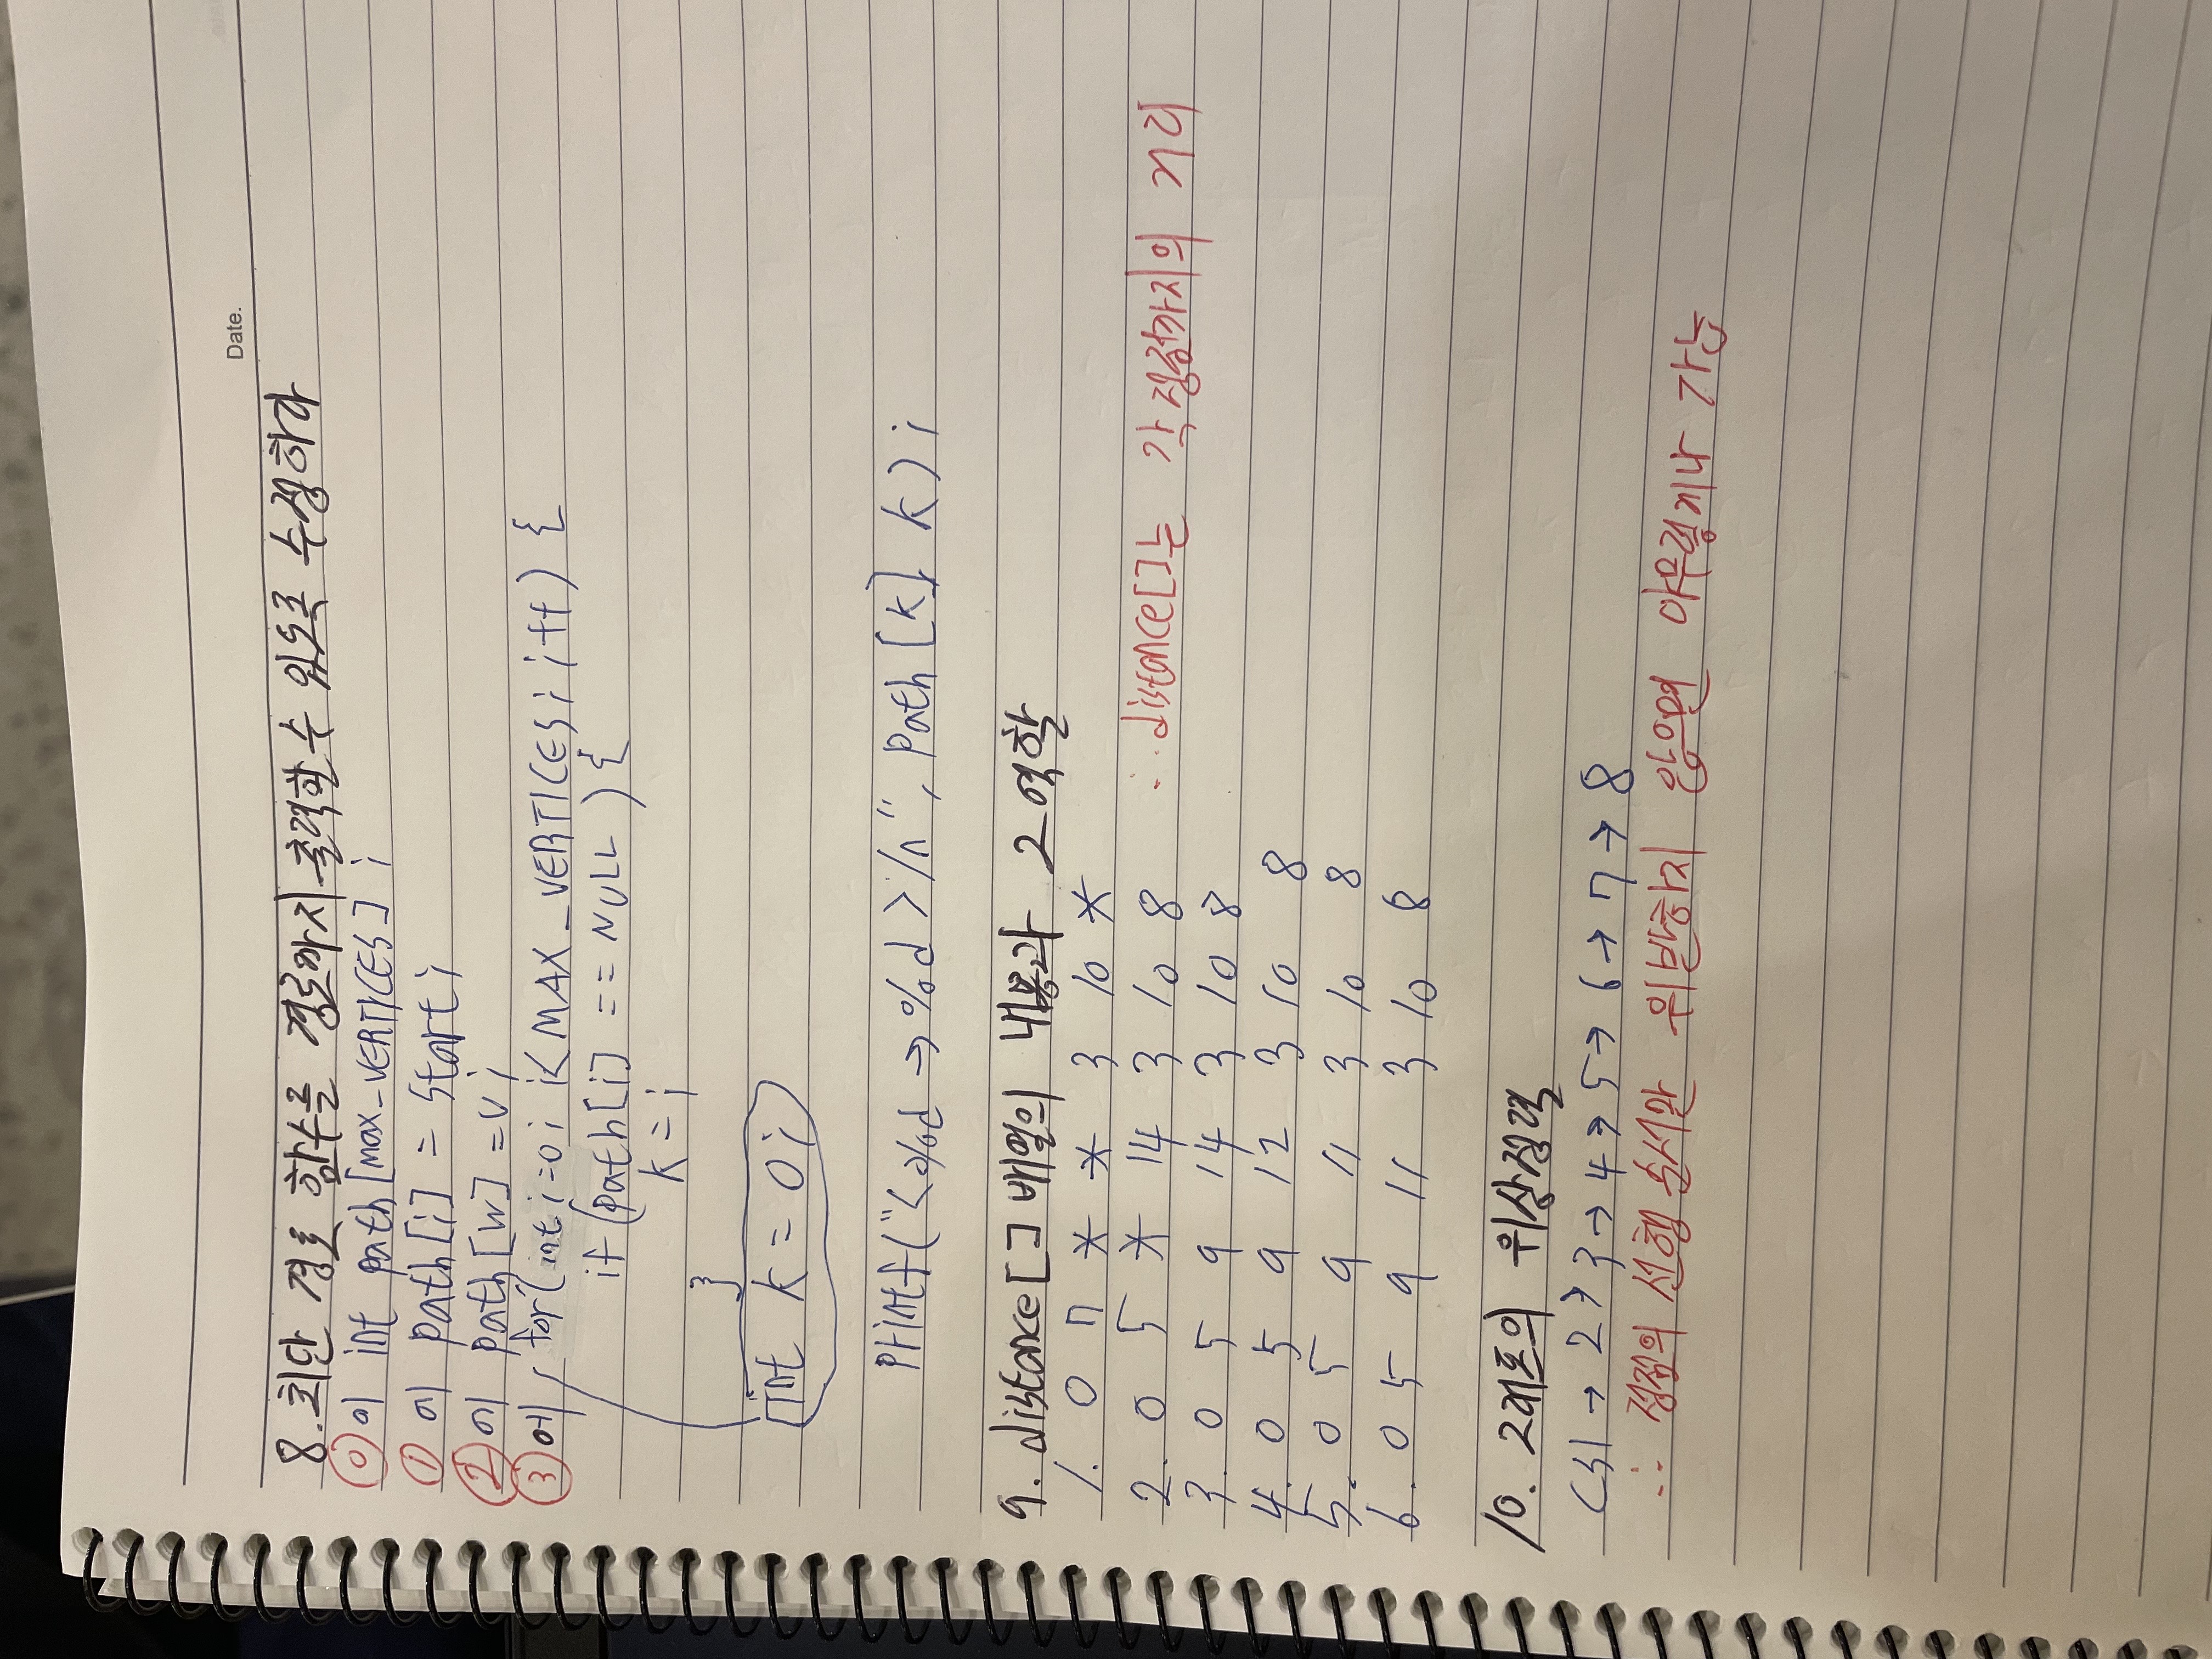 Date.
8. 최단 경로 함수를 경로까지 출력할 수 있도록 수정하라
⓪에 int path[max_VERTICES];
①에 path[i] = start;
②에 path[w] = v;
③에 for(int i=0; i<MAX_VERTICES; i++) {
if(path[i] == NULL) {
k = i
}
int k = 0;
printf("<%d → %d>/n", path[k], k);
9. distance[] 배열의 내용과 그 역할
1. 0 7 * * 3 10 *
2. 0 5 * 14 3 10 8 ∴ distance[]는 각 정점까지의 거리
3. 0 5 9 14 3 10 8
4. 0 5 9 12 3 10 8
5. 0 5 9 11 3 10 8
6. 0 5 9 11 3 10 8
10. 그래프의 위상정렬
1 → 2 → 3 → 4 → 5 → 6 → 7 → 8
∴ 정점의 선행 순서만 위반하지 않으면 아무렇게나 가능